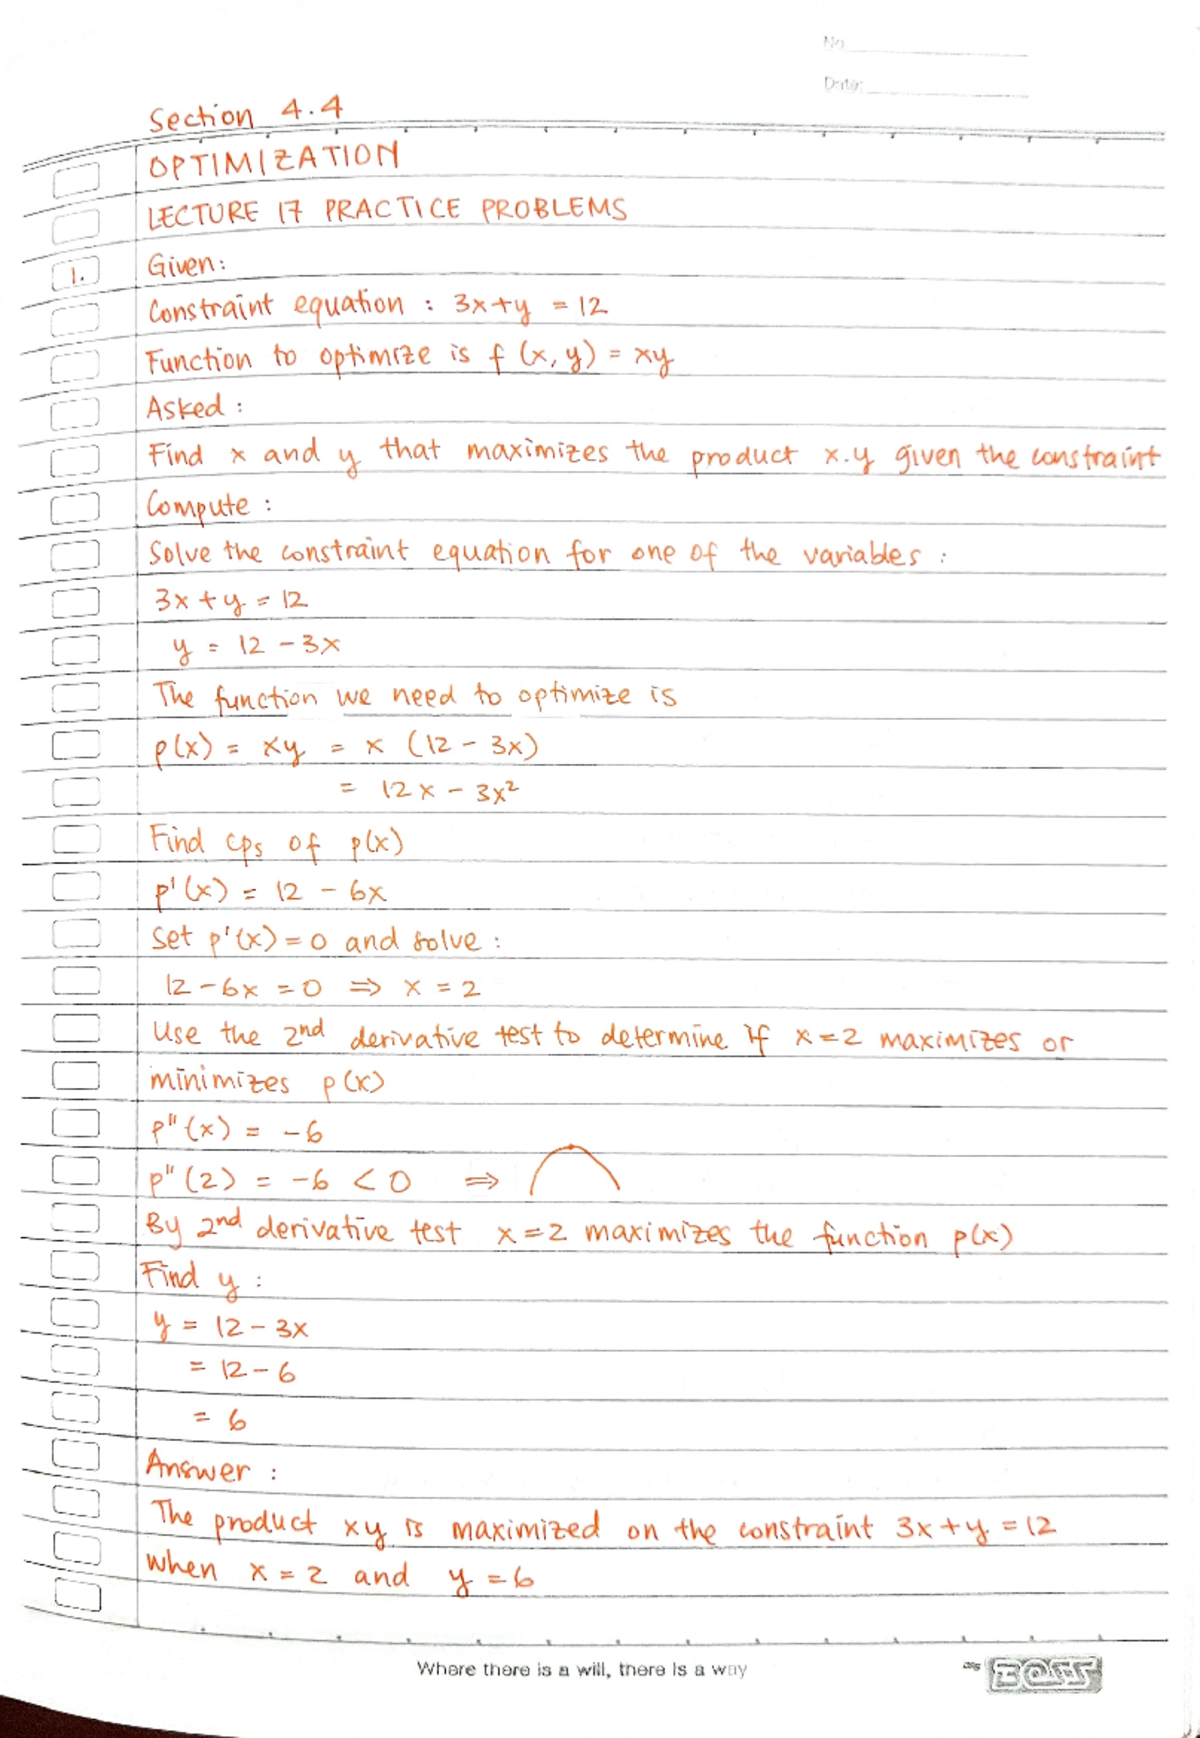 No
Date:
Section 4.4
OPTIMIZATION
LECTURE 17 PRACTICE PROBLEMS
1. Given:
Constraint equation : 3x+y = 12
Function to optimize is f (x, y) = xy
Asked :
Find x and y that maximizes the product x.y given the constraint
Compute :
Solve the constraint equation for one of the variables :
3x + y = 12
y = 12 - 3x
The function we need to optimize is
p(x) = xy = x (12 - 3x)
= 12x - 3x²
Find cps of p(x)
p'(x) = 12 - 6x
Set p'(x) = 0 and solve :
12 - 6x = 0 ⇒ x = 2
Use the 2nd derivative test to determine if x = 2 maximizes or
minimizes p(x)
p"(x) = -6
p"(2) = -6 < 0 ⇒
By 2nd derivative test x = 2 maximizes the function p(x)
Find y :
y = 12 - 3x
= 12 - 6
= 6
Answer :
The product xy is maximized on the constraint 3x + y = 12
when x = 2 and y = 6
Where there is a will, there is a way
BOSS